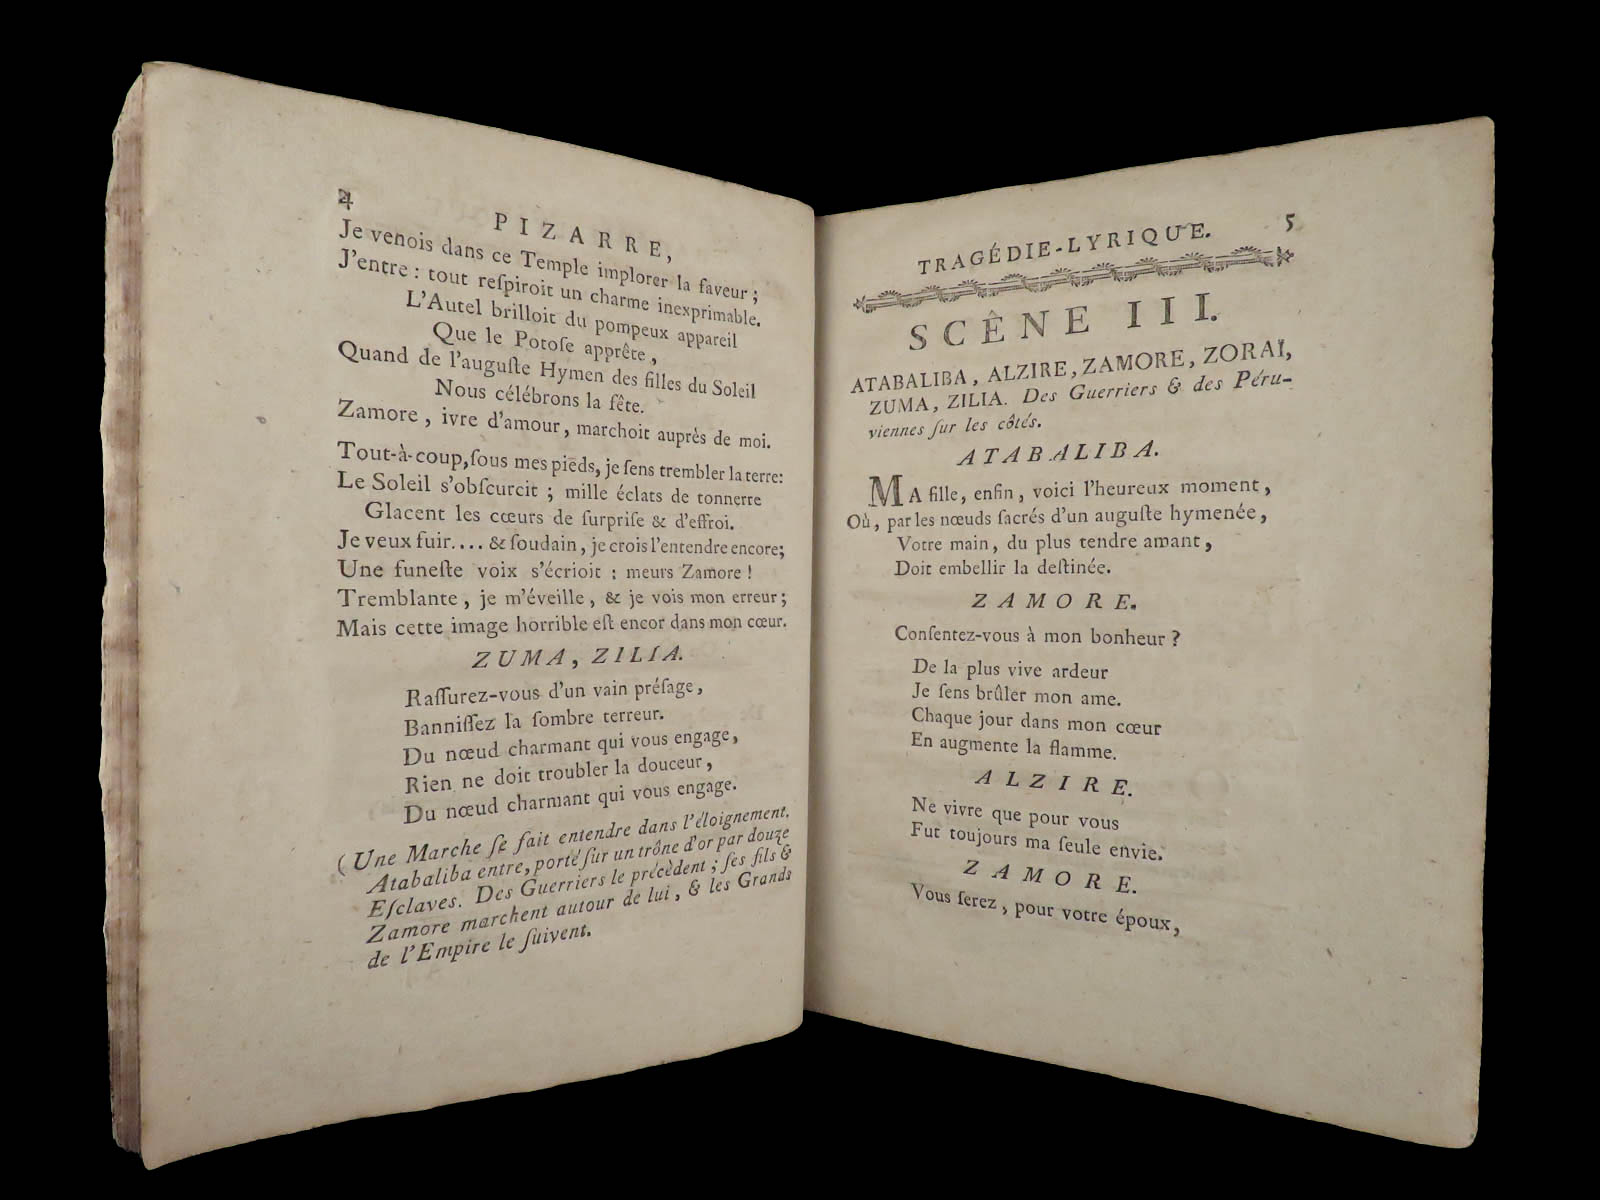 4
PIZARRE,
Je venois dans ce Temple implorer la faveur ;
J'entre : tout reſpiroit un charme inexprimable.
L'Autel brilloit du pompeux appareil
Que le Potoſe apprête,
Quand de l'auguſte Hymen des filles du Soleil
Nous célébrons la fête.
Zamore, ivre d'amour, marchoit auprès de moi.
Tout-à-coup, ſous mes pieds, je ſens trembler la terre:
Le Soleil s'obſcurcit ; mille éclats de tonnerre
Glacent les cœurs de ſurpriſe & d'effroi.
Je veux fuir.... & ſoudain, je crois l'entendre encore;
Une funeſte voix s'écrioit : meurs Zamore !
Tremblante, je m'éveille, & je vois mon erreur ;
Mais cette image horrible eſt encor dans mon cœur.
ZUMA, ZILIA.
Raſſurez-vous d'un vain préſage,
Banniſſez la ſombre terreur.
Du nœud charmant qui vous engage,
Rien ne doit troubler la douceur,
Du nœud charmant qui vous engage.
(Une Marche ſe fait entendre dans l'éloignement.
Atabaliba entre, porté ſur un trône d'or par douze
Eſclaves. Des Guerriers le précèdent ; ſes fils &
Zamore marchent autour de lui, & les Grands
de l'Empire le ſuivent.
TRAGÉDIE-LYRIQUE. 5
SCÊNE III.
ATABALIBA, ALZIRE, ZAMORE, ZORAÏ,
ZUMA, ZILIA. Des Guerriers & des Péru-
viennes ſur les côtés.
ATABALIBA.
MA fille, enfin, voici l'heureux moment,
Où, par les nœuds ſacrés d'un auguſte hymenée,
Votre main, du plus tendre amant,
Doit embellir la deſtinée.
ZAMORE.
Conſentez-vous à mon bonheur ?
De la plus vive ardeur
Je ſens brûler mon ame.
Chaque jour dans mon cœur
En augmente la flamme.
ALZIRE.
Ne vivre que pour vous
Fut toujours ma ſeule envie.
ZAMORE.
Vous ſerez, pour votre époux,